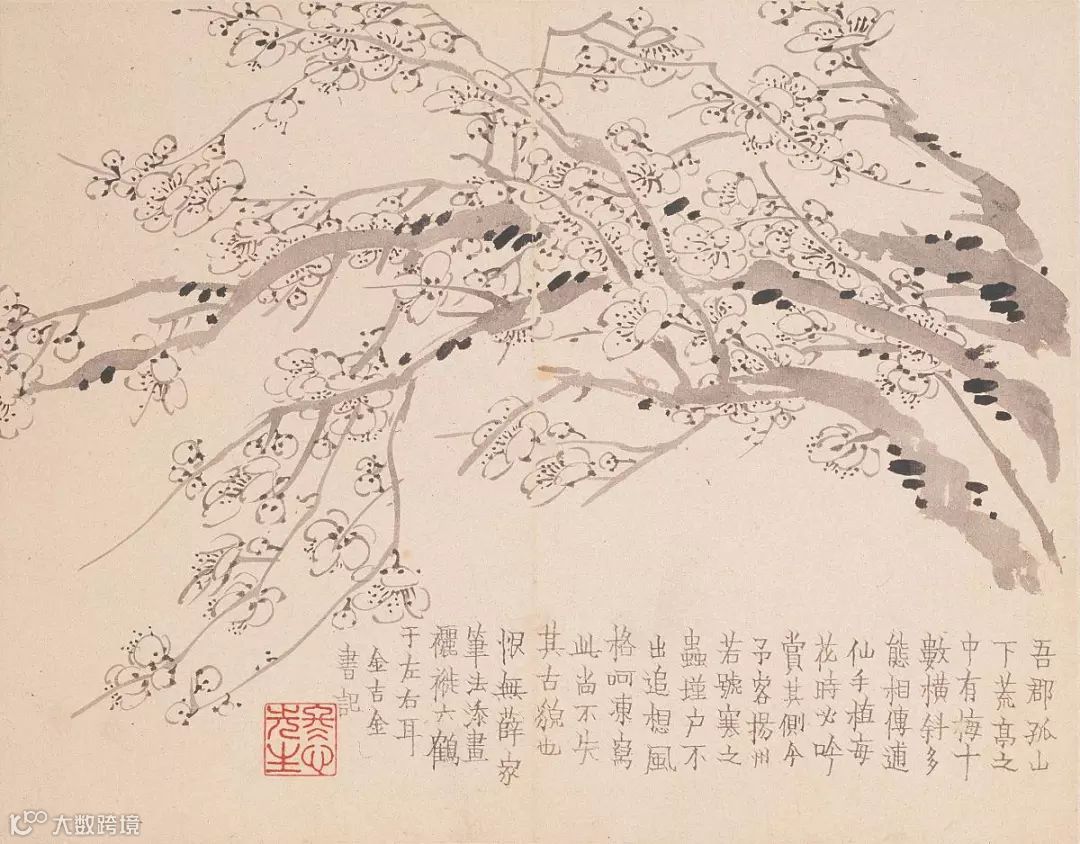 吾郡孤山
下荒亭之
中有梅十
數橫斜多
態相傳逋
仙手植每
花時必吟
賞其側今
予客揚州
若號寒之
蟲墐户不
出追想風
格呵凍寫
此尚不失
其古貌也
恨無薛家
筆法添畫
襬褷六鶴
于左右耳
金吉金
書記
冬心先生
大数跨境